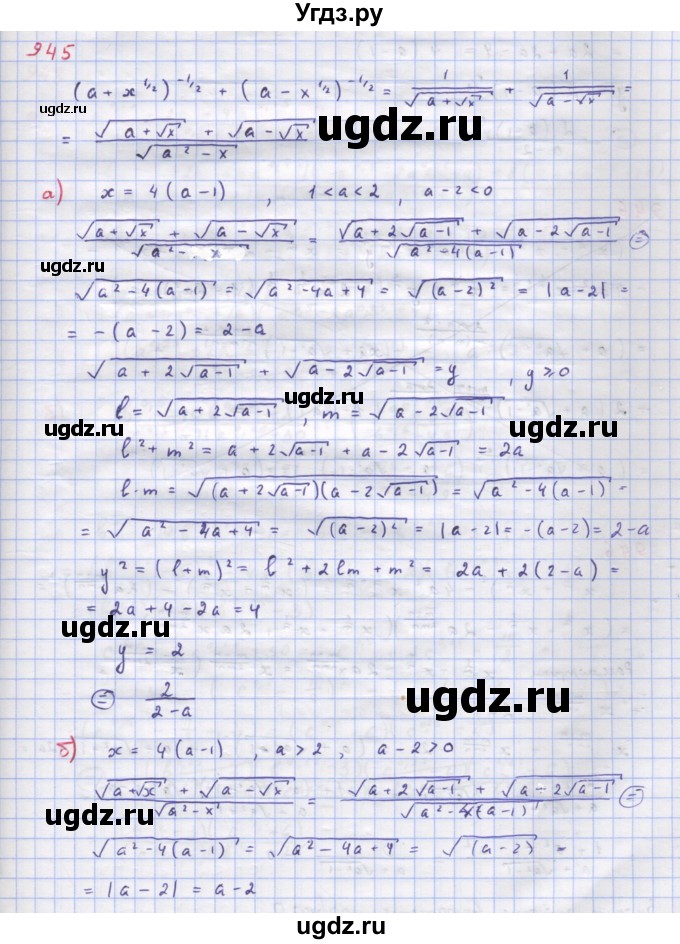 Угдз.ру
945
(a + x^{1/2})^{-1/2} + (a - x^{1/2})^{-1/2} = 1/√(a+√x) + 1/√(a-√x) =
= (√(a+√x) + √(a-√x))/√(a² - x)
ugdz.ru
а) x = 4(a-1) , 1<a<2 , a-2<0
ugdz.ru
(√(a+√x) + √(a-√x))/√(a² - x) = (√(a+2√(a-1)) + √(a-2√(a-1)))/√(a²-4(a-1)) =
ugdz.ru
ugdz.ru
√(a²-4(a-1)) = √(a²-4a+4) = √((a-2)²) = |a-2| =
= -(a-2) = 2-a
√(a+2√(a-1)) + √(a-2√(a-1)) = y , y⩾0
ugdz.ru
l = √(a+2√(a-1)) , m = √(a-2√(a-1))
ugdz.ru
ugdz.ru
l²+m² = a+2√(a-1) + a-2√(a-1) = 2a
l·m = √((a+2√(a-1))(a-2√(a-1))) = √(a²-4(a-1)) =
= √(a²-4a+4) = √((a-2)²) = |a-2| = -(a-2) = 2-a
ugdz.ru
y² = (l+m)² = l²+2lm+m² = 2a+2(2-a) =
= 2a+4-2a = 4
ugdz.ru
ugdz.ru
y = 2
= 2/(2-a)
ugdz.ru
б) x = 4(a-1) , a>2 , a-2>0
(√(a+√x) + √(a-√x))/√(a²-x) = (√(a+2√(a-1)) + √(a-2√(a-1)))/√(a²-4(a-1)) =
ugdz.ru
ugdz.ru
√(a²-4(a-1)) = √(a²-4a+4) = √((a-2) =
= |a-2| = a-2
ugdz.ru
ugdz.ru